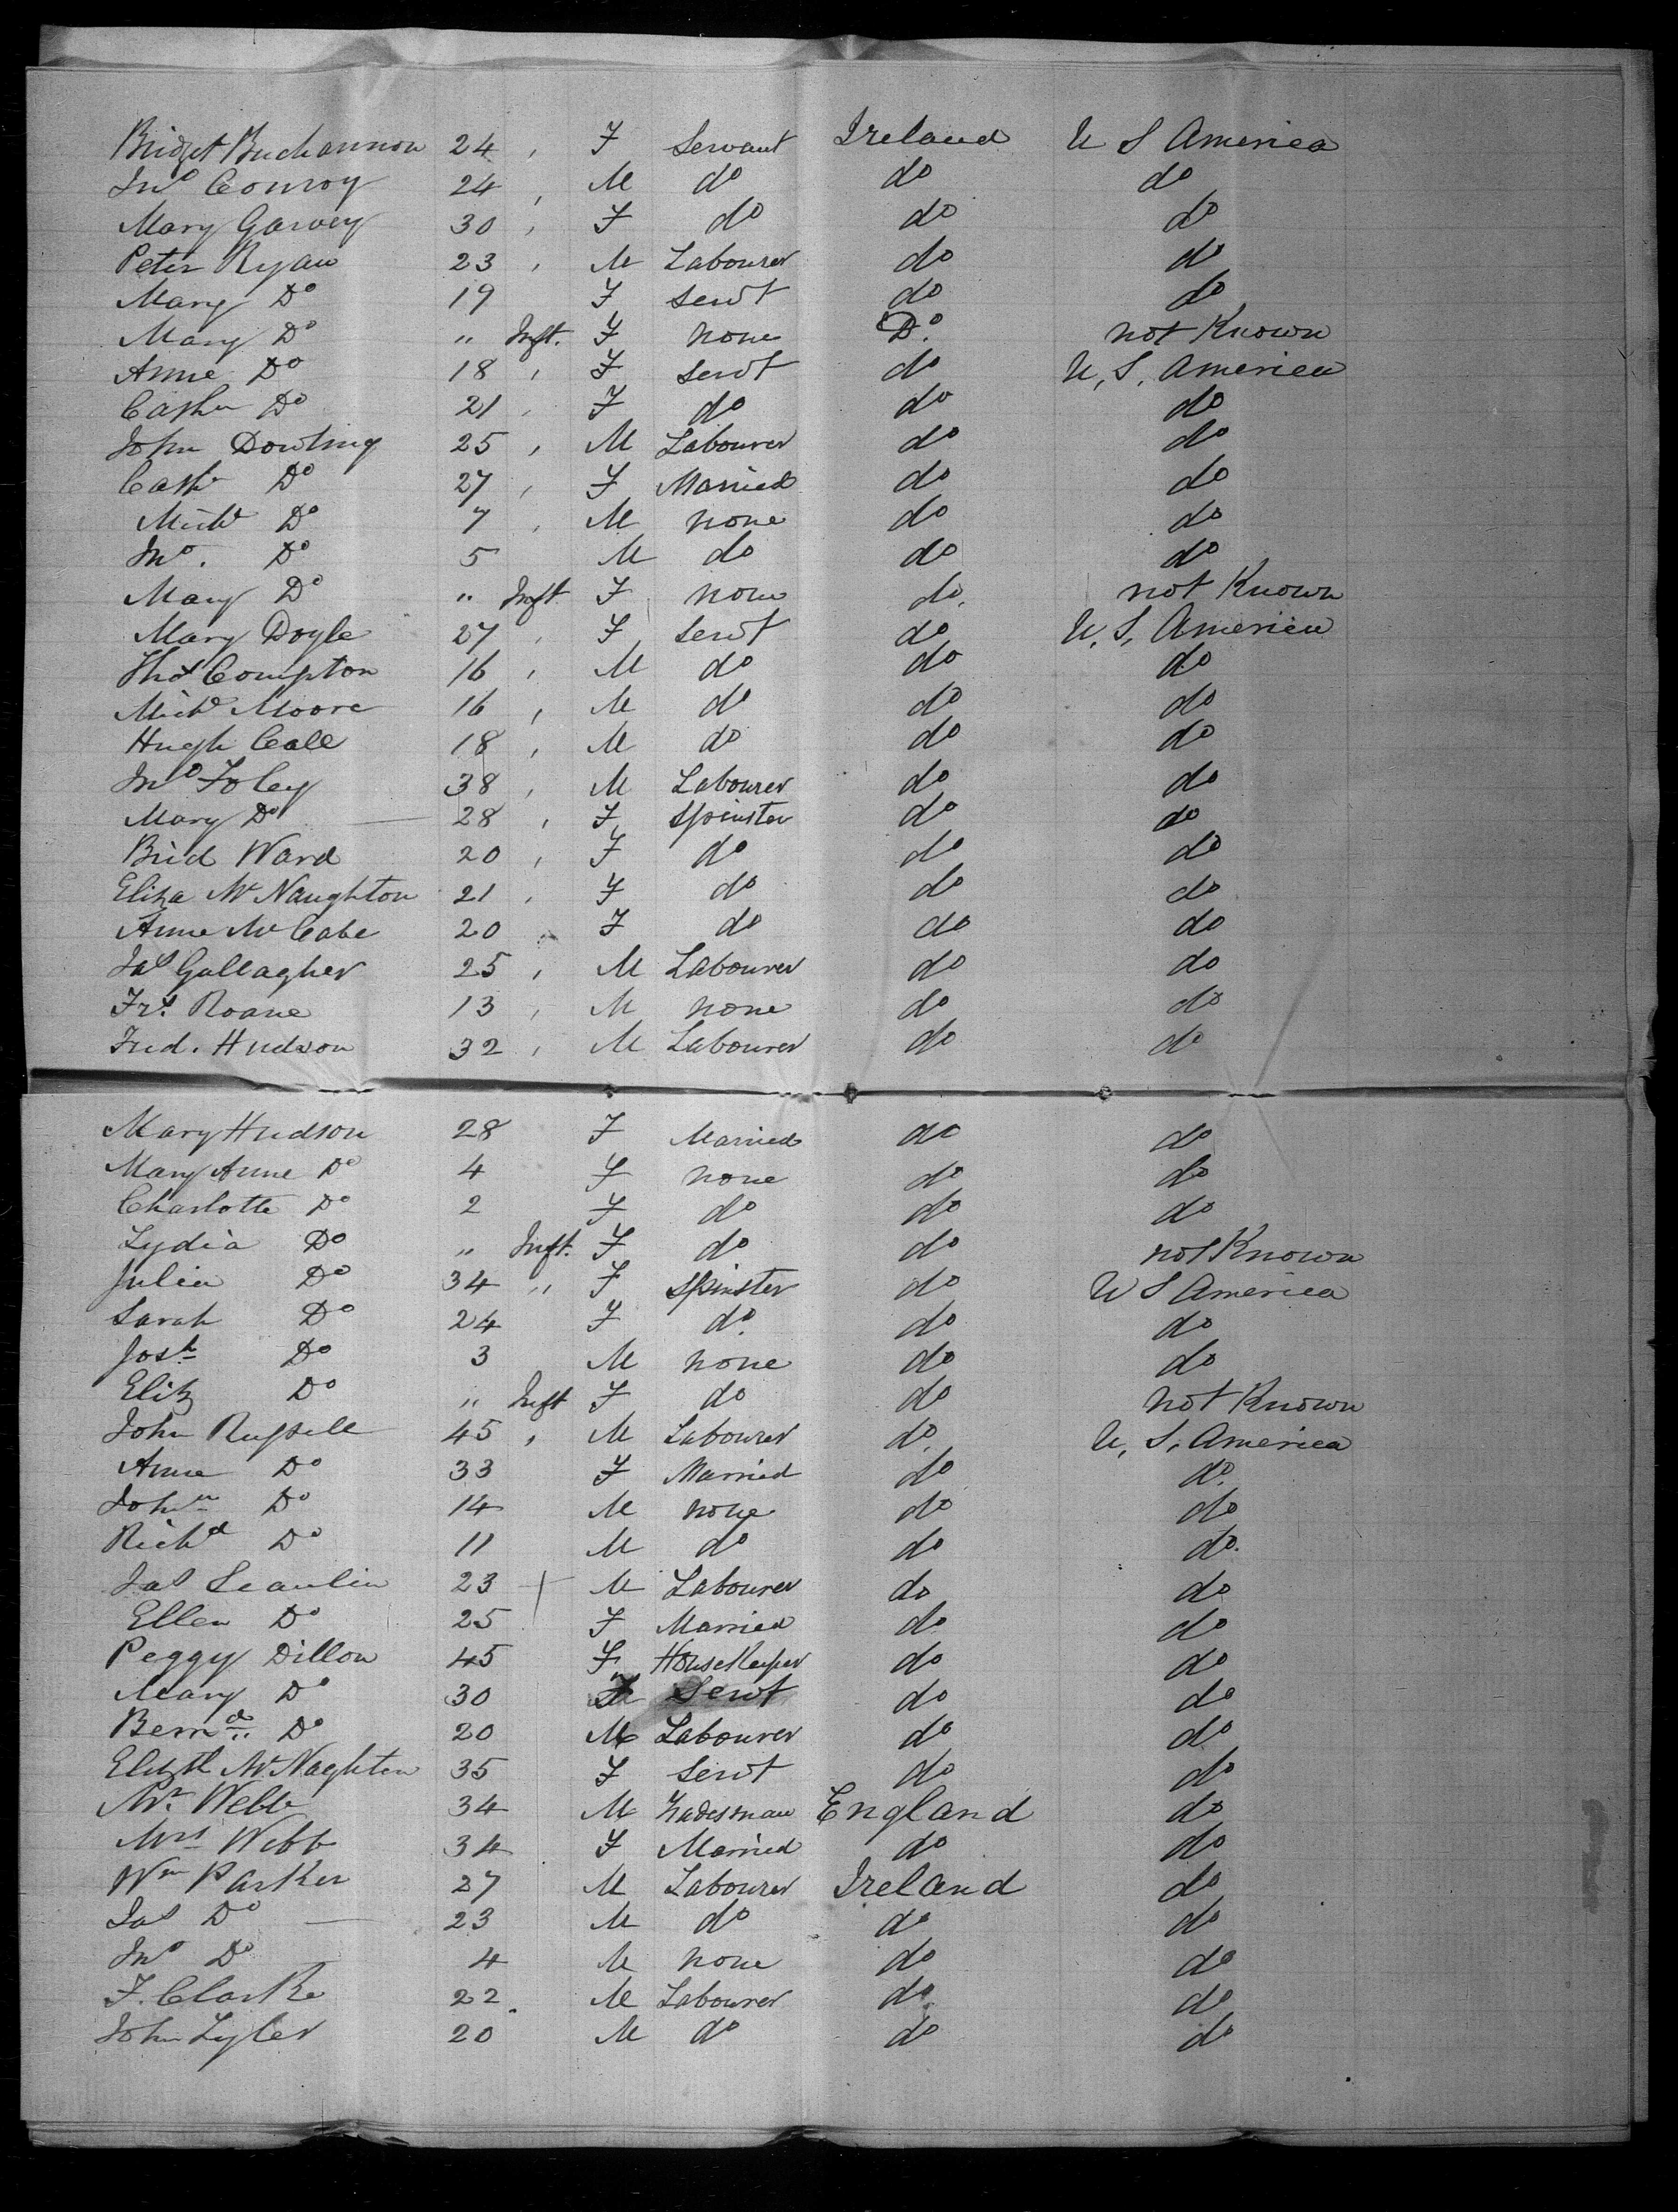 Bridget Buchannon 24 , F Servant Ireland U S America
Jno Conroy 24 , M do do do
Mary Garvey 30 , F do do do
Peter Ryan 23 , M Labourer do do
Mary Do 19 F Servt do do
Mary Do " Inft. F none Do. not Known
Anne Do 18 , F Servt do U, S, America
Cathn Do 21 , F do do do
John Dowling 25 , M Labourer do do
Cath Do 27 , F Married do do
Michl Do 7 , M none do do
Jno. Do 5 M do do do
Mary Do " Inft. F none do. not Known
Mary Doyle 27 , F Servt do U, S, America
Thos Compton 16 , M do do do
Michl Moore 16 , M do do do
Hugh Call 18 , M do do do
Jno Foley 38 , M Labourer do do
Mary Do — 28 , F Spinster do do
Brid Ward 20 , F do do do
Eliza Mc Naughton 21 , F do do do
Anne Mc Cabe 20 , F do do do
Jas Gallagher 25 , M Labourer do do
Frs. Roane 13 , M none do do
Fred. Hudson 32 , M Labourer do do
Mary Hudson 28 F Married do do
Mary Anne Do 4 F none do do
Charlotte Do 2 F do do do
Lydia Do " Inft. F do do not Known
Julia Do 34 " F Spinster do U S America
Sarah Do 24 F do. do do
Josh Do 3 M none do do
Eliz Do " Inft F do do not Known
John Russell 45 , M Labourer do. U, S, America
Anne Do 33 F Married do do.
John Do 14 M none do do
Richd Do 11 M do do do.
Jas Scanlin 23 + M Labourer do do
Ellen Do 25 F Married do do
Peggy Dillon 45 F HouseKeeper do do
Mary Do 30 F Servt do do
Bernd Do 20 M Labourer do do
Elizth Mc Naghten 35 F Servt do do
Mr. Webb 34 M Tradesman England do
Mrs Webb 34 F Married do do
Wm Parker 27 M Labourer Ireland do
Jas Do — 23 M do do do
Jno Do 4 M none do do
F. Clarke 22. M Labourer do do
John Lyler 20 M do do do